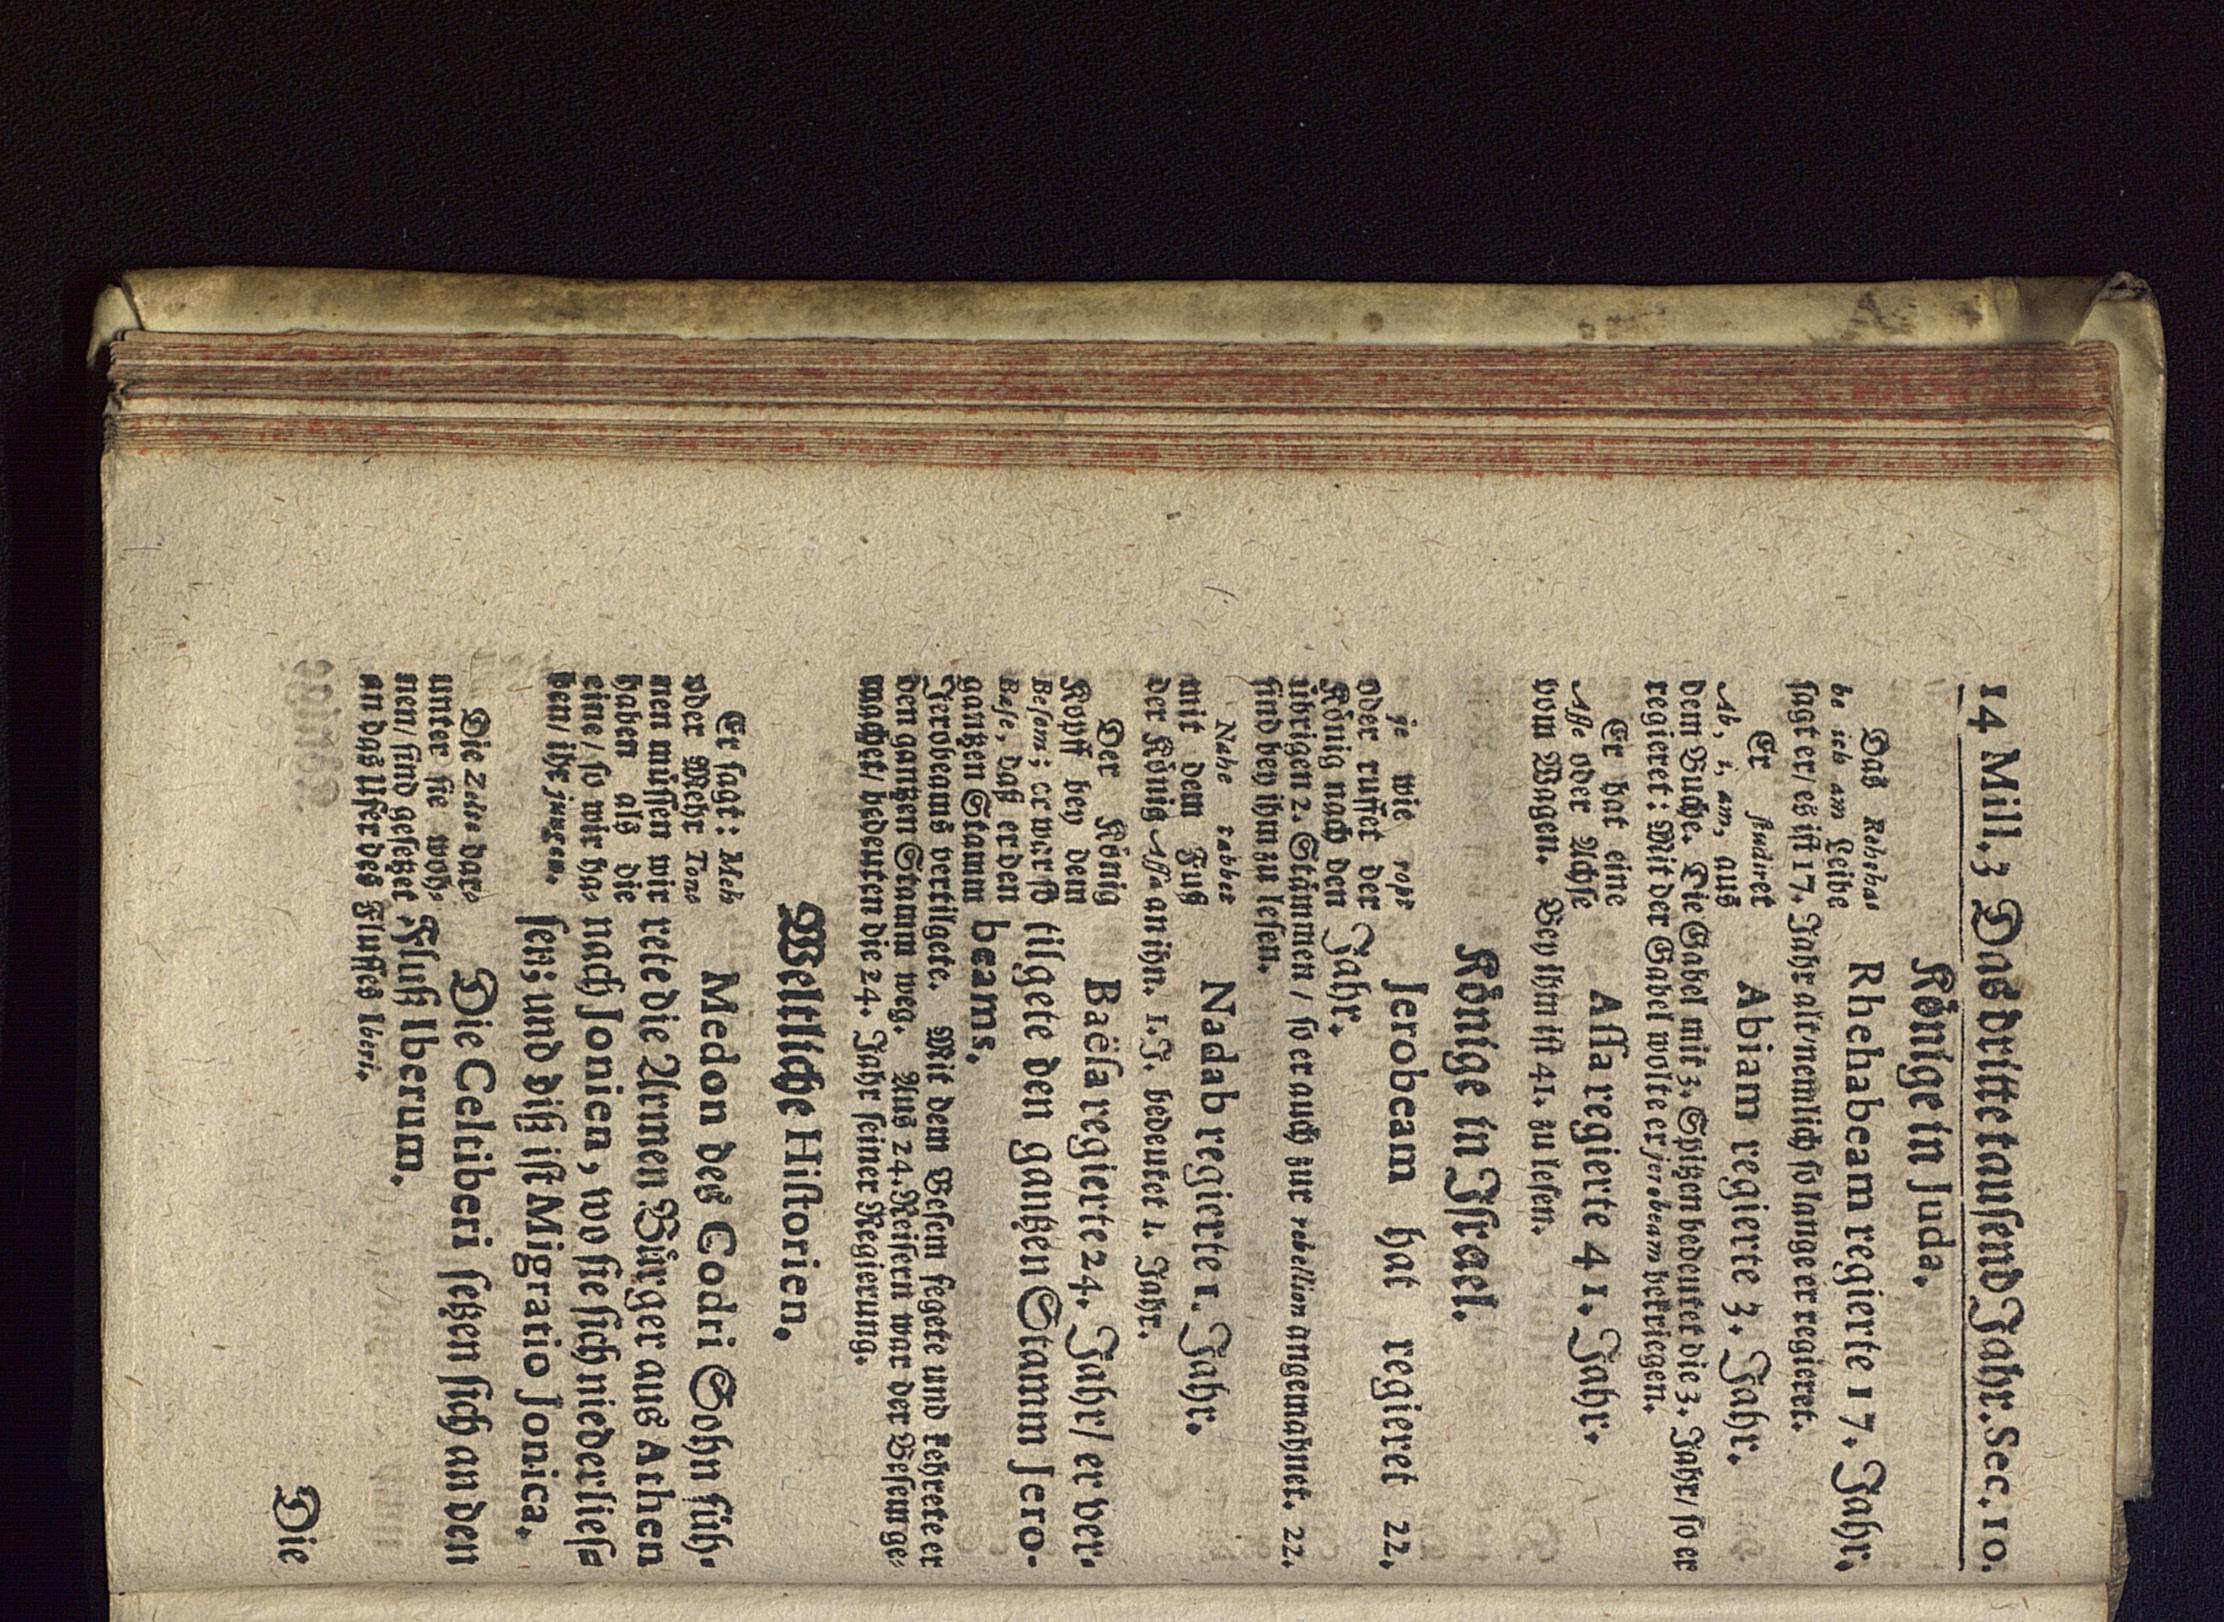 14 Mill. 3 Das dritte tausend Jahr. Sec. 10.
Könige in Juda.
Das Rehabe
be ich am Leibe
Rhehabeam regierte 17. Jahr,
sagt er/ es ist 17. Jahr alt/ nemlich so lange er regieret.
Er studiret
Ab, i, am, aus
Abiam regierte 3. Jahr.
dem Buche. Die Gabel mit 3. Spitzen bedeutet die 3. Jahr/ so er
regieret: Mit der Gabel wolte er jerobeam betriegen.
Er hat eine
Asse oder Achse
Assa regierte 41. Jahr.
vom Wagen. Bey ihm ist 41. zu lesen.
Könige in Israel.
je wie ropt
oder ruffet der
König nach den
Jerobeam hat regieret 22,
Jahr.
übrigen 2. Stämmen/ so er auch zur rebellion angemahnet. 22.
sind bey ihm zu lesen.
Nahe tabbet
mit dem Fuß
Nadab regierte 1. Jahr.
der König Assa an ihn. 1. J. bedeutet 1. Jahr.
Der König
Kopff bey dem
Besem; er wurff
Base, daß er den
gantzen Stamm
Baësa regierte 24. Jahr/ er ver-
tilgete den gantzen Stamm Jero-
beams.
Jerobeams vertilgete. Mit dem Besem fegete und kehrete er
den gantzen Stamm weg. Aus 24. Reisern war der Besem ge-
machet/ bedeuten die 24. Jahr seiner Regierung.
Weltliche Historien.
Er sagt: Meh
oder Mehr Tone
nen müssen wir
haben als die
eine/ so wir ha-
ben/ ihr jungen.
Medon des Codri Sohn füh-
rete die Armen Bürger aus Athen
nach Jonien, wo sie sich niederlies-
sen; und diß ist Migratio Jonica.
Die Zelte dar-
unter sie woh-
nen/ sind gesetzet
Die Celtiberi setzen sich an den
Fluß Iberum.
an das Ufer des Flusses Iberi.
Die